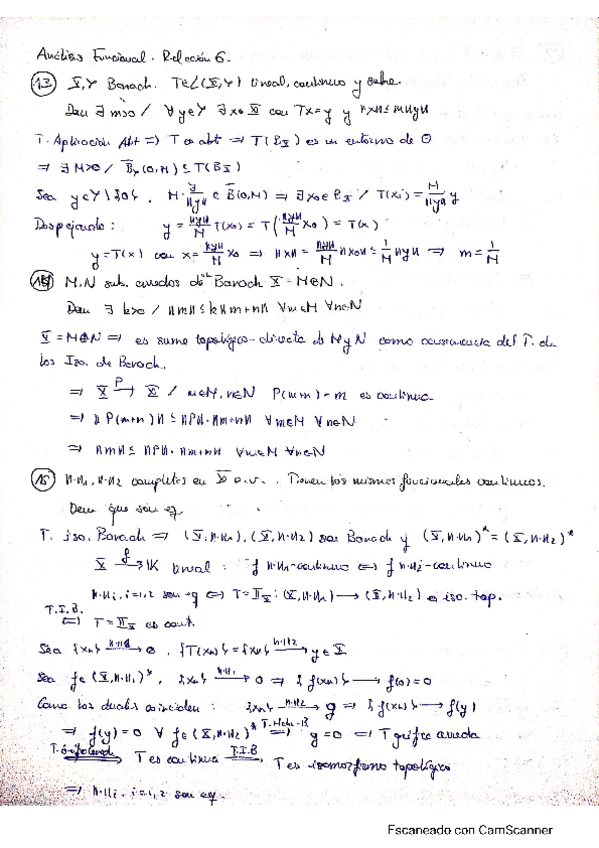 Análisis Funcional. Relación 6.
(13) X, Y Banach. T∈L(X,Y) lineal, continuo y sobre.
Dem ∃ m>0 / ∀ y∈Y ∃ x∈X con Tx=y y ‖x‖≤m‖y‖
T. Aplicación Abt ⇒ T es abt ⇒ T(B_X) es un entorno de 0
⇒ ∃ M>0 / B̄_Y(0,M) ⊆ T(B_X)
Sea y∈Y\{0}. M·y/‖y‖ ∈ B̄(0,M) ⇒ ∃ x₀∈B_X / T(x₀) = M/‖y‖ y
Despejando: y = ‖y‖/M T(x₀) = T(‖y‖/M x₀) = T(x)
y = T(x) con x = ‖y‖/M x₀ ⇒ ‖x‖ = ‖y‖/M ‖x₀‖ ≤ 1/M ‖y‖ ⇒ m = 1/M
(14) M, N sub. cerrados de Banach X = M⊕N.
Dem ∃ k>0 / ‖m‖≤k‖m+n‖ ∀m∈M ∀n∈N
X = M⊕N ⇒ es suma topológico-directa de M y N como consecuencia del T. de
los Iso. de Banach.
⇒ X →P X / m∈M, n∈N P(m+n) = m es continua
⇒ ‖P(m+n)‖ ≤ ‖P‖·‖m+n‖ ∀m∈M ∀n∈N
⇒ ‖m‖ ≤ ‖P‖·‖m+n‖ ∀m∈M ∀n∈N
(15) ‖·‖₁, ‖·‖₂ completas en X e.v. . Tienen los mismos funcionales continuos.
Dem que son eq.
T. iso. Banach ⇒ (X,‖·‖₁), (X,‖·‖₂) son Banach y (X,‖·‖₁)* = (X,‖·‖₂)*
X →f K lineal : f ‖·‖₁-continuo ⇔ f ‖·‖₂-continuo
‖·‖ᵢ, i=1,2 son eq ⇔ T = I_X : (X,‖·‖₁) → (X,‖·‖₂) es iso. top.
T.I.B. ⇔ T = I_X es cont.
Sea {xₙ} →‖·‖₁ 0, {T(xₙ)} = {xₙ} →‖·‖₂ y∈X
Sea f∈(X,‖·‖₁)*, {xₙ} →‖·‖₁ 0 ⇒ {f(xₙ)} → f(0)=0
Como los duales coinciden : {xₙ} →‖·‖₂ y ⇒ {f(xₙ)} → f(y)
⇒ f(y)=0 ∀ f∈(X,‖·‖₂)* T.Hahn-B ⇒ y=0 ⇒ T gráfica cerrada
⇒ T es continua T.I.B ⇒ T es isomorfismo topológico
⇒ ‖·‖ᵢ, i=1,2 son eq.
Escaneado con CamScanner